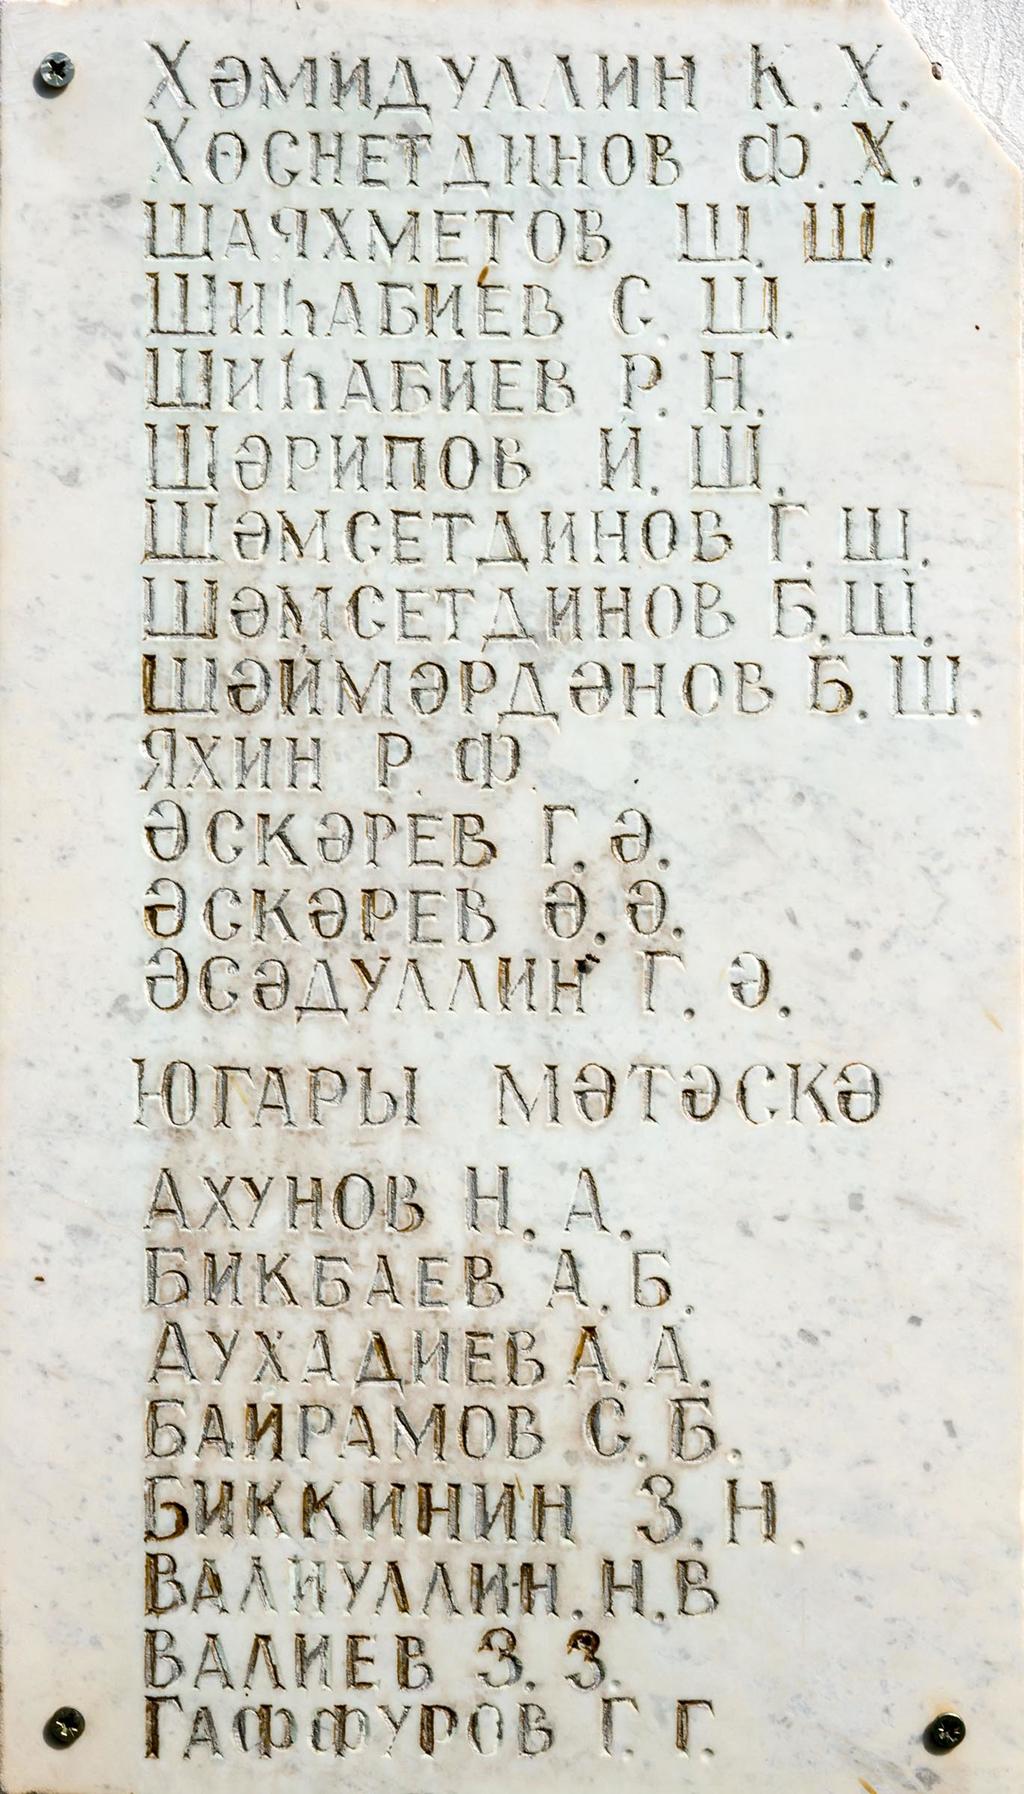 ХӘМИДУЛЛИН К. Х.
ХӨСНЕТДИНОВ Ф. Х.
ШАЯХМЕТОВ Ш. Ш.
ШИҺАБИЕВ С. Ш.
ШИҺАБИЕВ Р. Н.
ШӘРИПОВ И. Ш.
ШӘМСЕТДИНОВ Г. Ш.
ШӘМСЕТДИНОВ Б. Ш.
ШӘЙМӘРДӘНОВ Б. Ш.
ЯХИН Р. Ф.
ӘСКӘРЕВ Г. Ә.
ӘСКӘРЕВ Ә. Ә.
ӘСӘДУЛЛИН Г. Ә.
ЮГАРЫ МӘТӘСКӘ
АХУНОВ Н. А.
БИКБАЕВ А. Б.
АУХАДИЕВ А. А.
БАИРАМОВ С. Б.
БИККИНИН З. Н.
ВАЛИУЛЛИН. Н. В
ВАЛИЕВ З. З.
ГАФФУРОВ Г. Г.